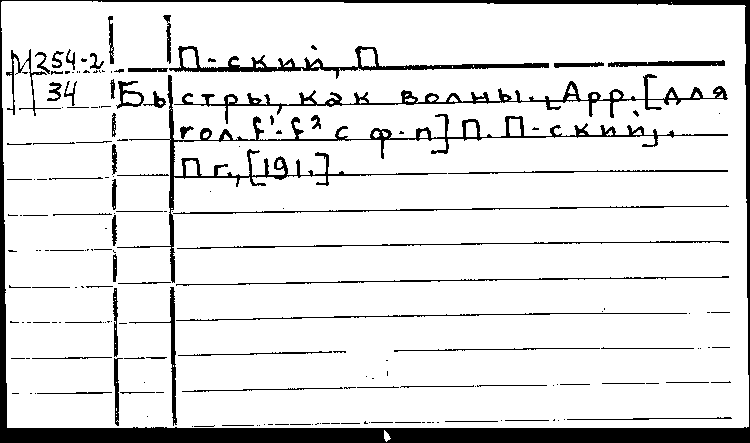 М254-2 П-ский, П
34 Быстры, как волны. [Арр. [для
гол. f¹-f² с ф-п] П. П-ский].
Пг., [191.].